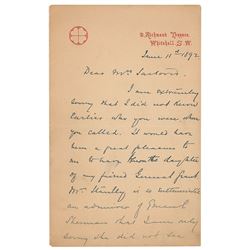 2, Richmond Terrace,
Whitehall, S.W.
June 11th 1892
Dear Mrs Sartoris
I am extremely
sorry that I did not know
earlier who you were when
you called. It would have
been a great pleasure to
me to have known the daughter
of my friend General Grant
Mr Stanley is so
an admirer of General
Sherman that I am very
sorry she did not see